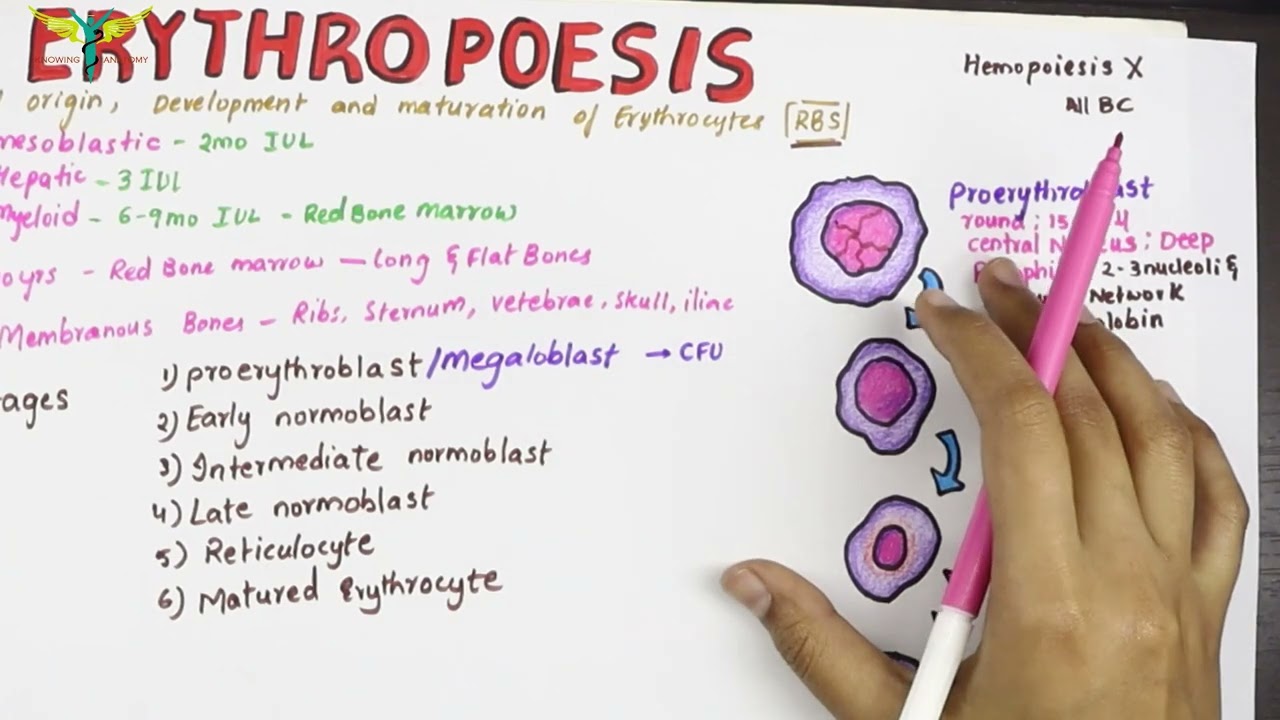 ERYTHROPOESIS
KNOWING ANATOMY
origin, Development and maturation of Erythrocytes [RBS]
mesoblastic - 2mo IUL
Hepatic - 3 IUL
Myeloid - 6-9mo IUL - Red Bone marrow
oyrs - Red Bone marrow - Long & Flat Bones
Membranous Bones - Ribs, Sternum, vetebrae, skull, iliac
ages
1) proerythroblast/Megaloblast → CFU
2) Early normoblast
3) Intermediate normoblast
4) Late normoblast
5) Reticulocyte
6) Matured Erythrocyte
Hemopoiesis X
All BC
round: 15
central Deep
2-3nucleoli &
Network